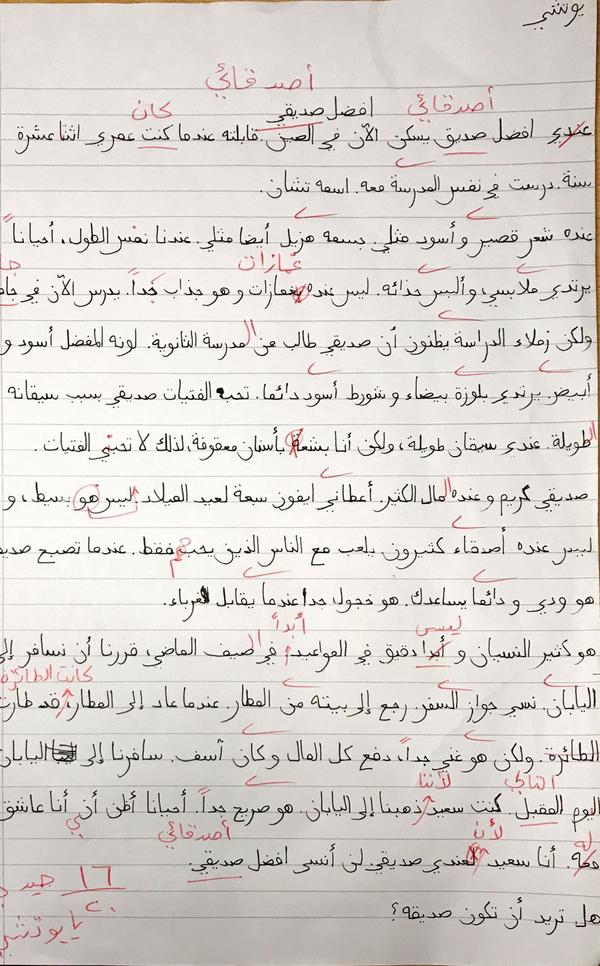 يوتشي
أصدقائي
أصدقائي افضل صديقي كان
عندي افضل صديق يسكن الآن في الصين. قابلته عندما كنت عمري اثنا عشرة
سنة. درست في نفس المدرسة معه. اسمه تشان.
عنده شعر قصير وأسود مثلي. جسمه هزيل أيضا مثلي. عندنا نفس الطول، أحياناً
غمازات
يرتدي ملابسي، وألبس حذائه. ليس عنده غمازات وهو جذاب جداً. يدرس الآن في
ولكن زملاء الدراسة يظنون أن صديقي طالب من المدرسة الثانوية. لونه المفضل أسود و
أبيض. يرتدي بلوزة بيضاء و شورط أسود دائما. تحب الفتيات صديقي بسبب سيقانه
الطويلة. عندي سيقان طويلة، ولكن أنا بشعة بأسنان معقوفة، لذلك لا تحبني الفتيات.
صديقي كريم وعنده المال الكثير. أعطاني ايفون سبعة لعيد الميلاد. ليس هو بسيط، و
ليس عنده أصدقاء كثيرون يلعب مع الناس الذين يحب فقط. عندما تصبح
هو ودي ودائما يساعدك. هو خجول جدا عندما يقابل غرباء.
ليس أبداً
هو كثير النسيان و أبدا دقيق في المواعيد. في الصيف الماضي، قررنا أن نسافر إلى
كانت الطائرة
اليابان. نسي جواز السفر. رجع إلى بيته من المطار. عندما عاد إلى المطار، قد طارت
الطائرة. ولكن هو غني جداً، دفع كل المال وكان آسف. سافرنا إلى اليابان
التالي لأننا
اليوم المقبل. كنت سعيد ذهبنا إلى اليابان. هو صريح جداً. أحيانا أظن أن أنا عاشق
أصدقائي لأن له
معه. أنا سعيد لعندي صديقي. لن أنسى افضل صديقي.
١٦ جيد
٢٠
هل تريد أن تكون صديقه؟
يا يوتشي